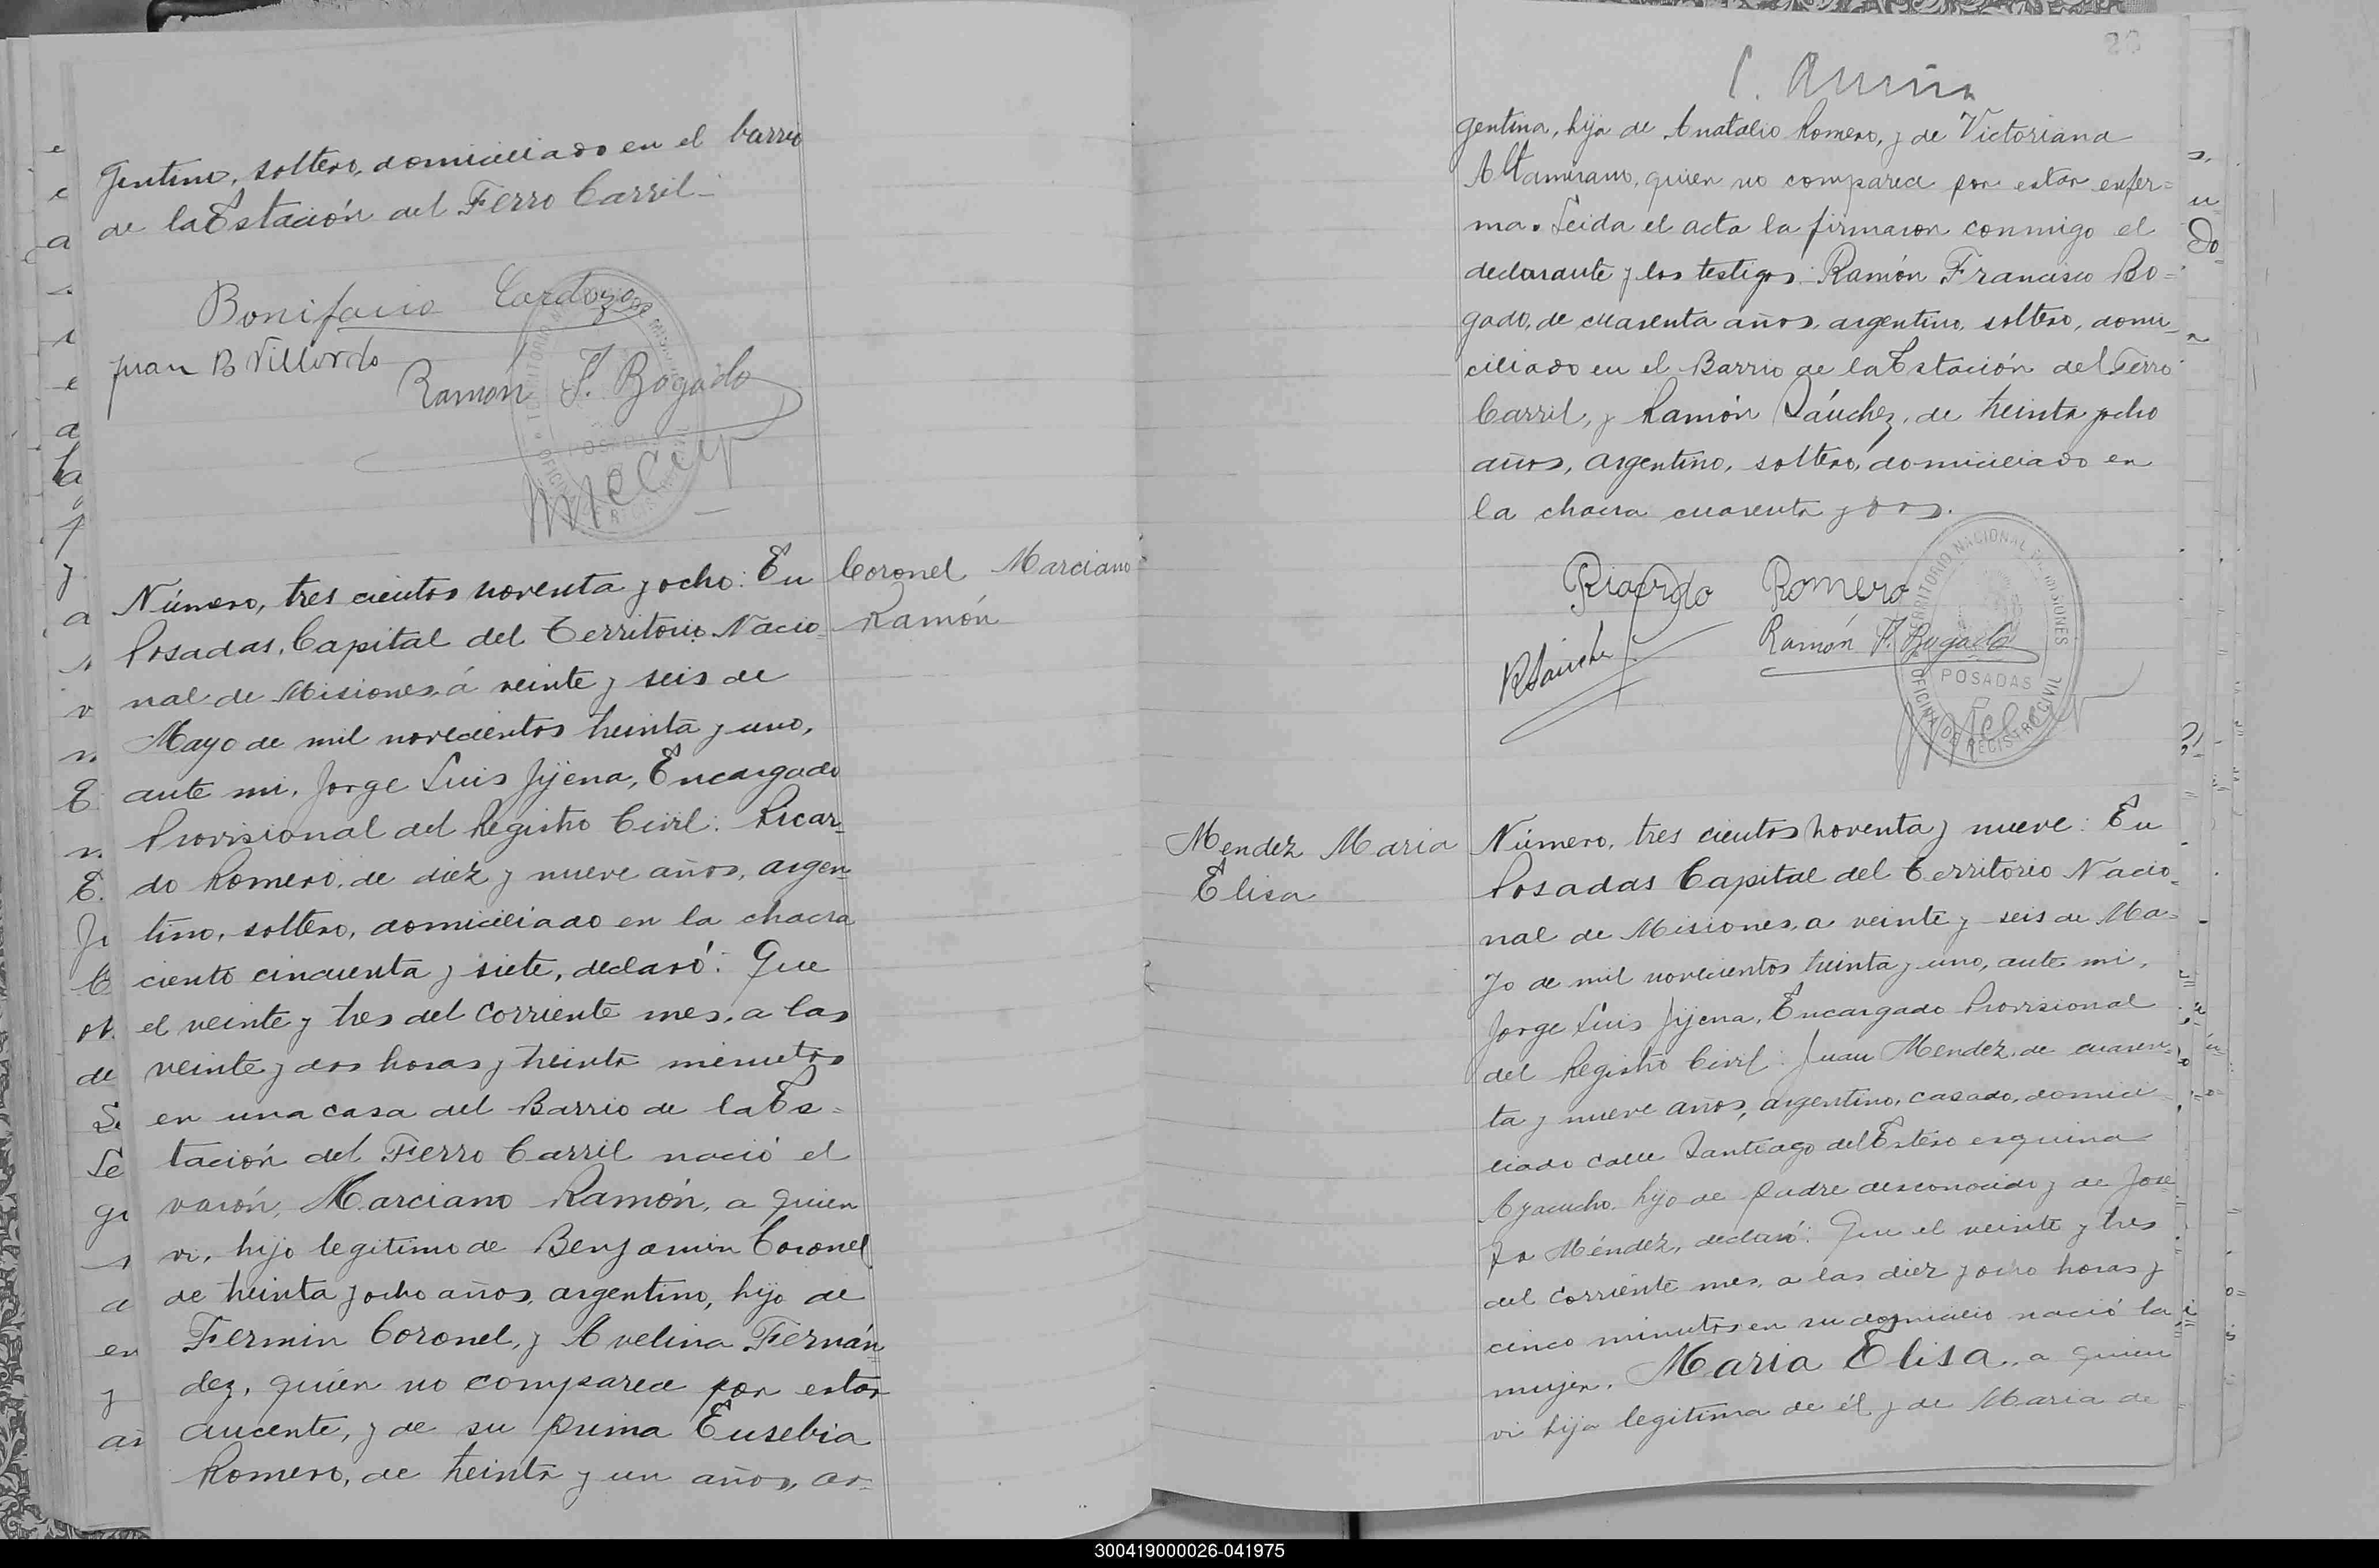 gentino, soltero, domiciliado en el barrio
de la Estación del Ferro Carril-
Bonifacio Cardozo
Juan B Villordo
Ramon F. Bogado
Coronel Marciano
Ramón
Número, tres cientos noventa y ocho: En
Posadas, Capital del Territorio Nacio-
nal de Misiones, á veinte y seis de
Mayo de mil novecientos treinta y uno,
ante mi, Jorge Luis Jijena, Encargado
Provisional del Registro Civil: Ricar-
do Romero, de diez y nueve años, argen-
tino, soltero, domiciliado en la chacra
ciento cincuenta y siete, declaró: Que
el veinte y tres del corriente mes, a las
veinte y dos horas y treinta minutos
en una casa del Barrio de la Es-
tación del Fierro Carril nació el
varón, Marciano Ramón, a quien
vi, hijo legitimo de Benjamin Coronel
de treinta y ocho años, argentino, hijo de
Fermin Coronel, y Avelina Fernán-
dez, quien no comparece por estar
aucente, y de su prima Eusebia
Romero, de treinta y un años, ar-
gentina, hija de Anatalio Romero, y de Victoriana
Altamirano, quien no comparece por estar enfer-
ma. Leida el acta la firmaron conmigo el
declarante y los testigos: Ramón Francisco Bo-
gado, de cuarenta años, argentino, soltero, domi-
ciliado en el Barrio de la Estación del Ferro
Carril, y Ramón Sánchez, de treinta y ocho
años, argentino, soltero, domiciliado en
la chacra cuarenta y dos.
Ricardo Romero
RSanche
Ramón F. Bogado
TERRITORIO NACIONAL DE MISIONES
POSADAS
OFICINA DE REGISTRO CIVIL
Mendez Maria
Elisa
Número, tres cientos noventa y nueve: En
Posadas Capital del Territorio Nacio-
nal de Misiones, a veinte y seis de Ma-
yo de mil novecientos treinta y uno, ante mi,
Jorge Luis Jijena, Encargado Provisional
del Registro Civil: Juan Mendez, de cuaren-
ta y nueve años, argentino, casado, domici-
liado calle Santiago del Estero esquina
Ayacucho, hijo de padre desconocido y de Jose-
fa Méndez, declaró: Que el veinte y tres
del corriente mes, a las diez y ocho horas y
cinco minutos en su domicilio nació la
mujer, Maria Elisa, a quien
vi hija legitima de él y de Maria de
300419000026-041975